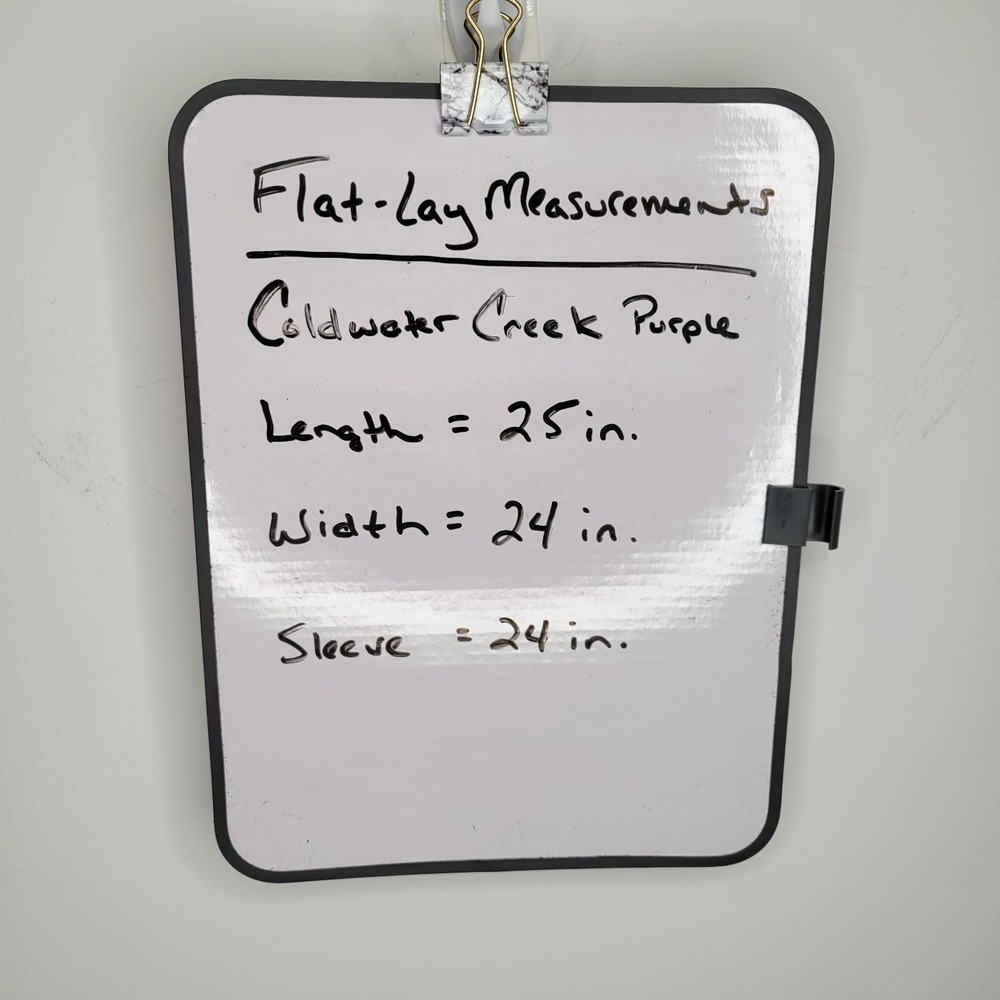 Flat-Lay Measurements
Coldwater Creek Purple
Length = 25 in.
Width = 24 in.
Sleeve = 24 in.